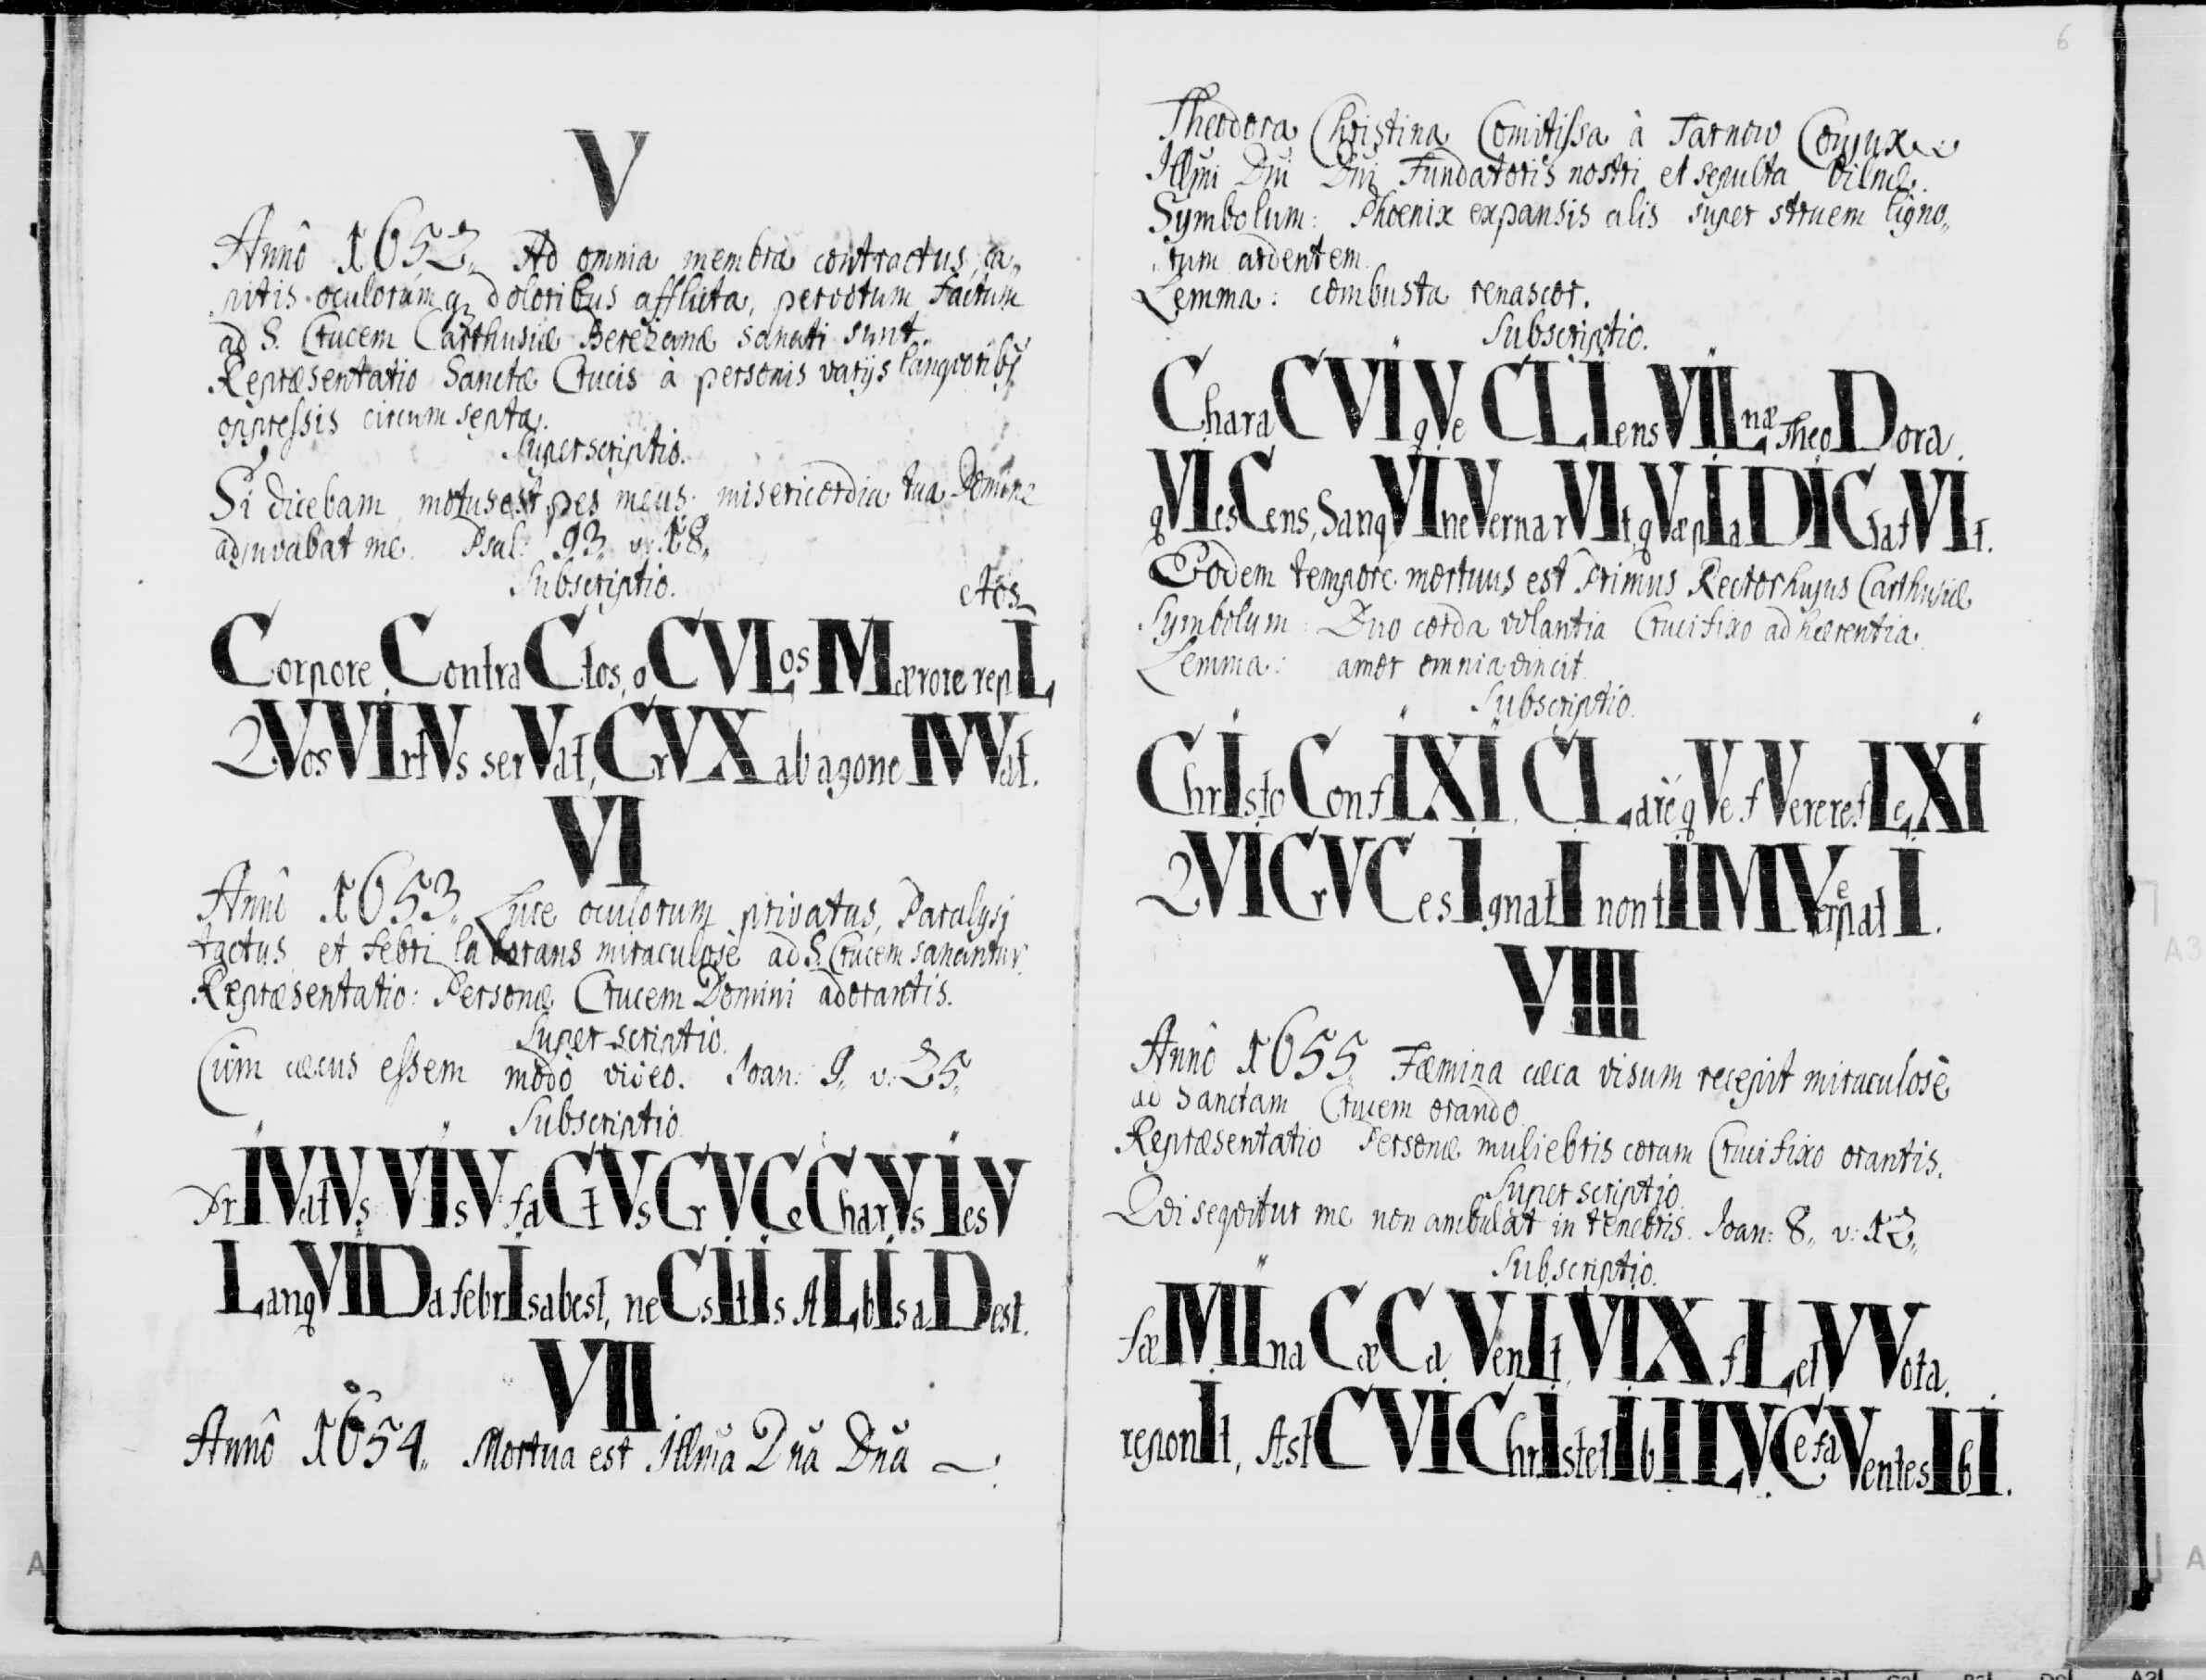 V
Annô 1652. Ad omnia membra contractus, ca„
pitis oculorumq; doloribus afflicta, per votum factum
ad S. Crucem Carthusiæ Berezanæ sanati sunt.
Repræsentatio Sanctæ Crucis à personis varijs languorib9
oppressis circumsepta.
Superscriptio.
Si dicebam motus est pes meus: misericordia tua Domine
adjuvabat me. Psal: 93. v: 18.
Subscriptio.
etos
Corpore ContraCtos, oCVLos Mærore repL
QVos VIrtVs serVat, CrVX ab agone IVVat.
VI
Annô 1653. Luce oculorum privatus, Paralysi
tactus et febri laborans miraculosè ad S. Crucem sanantur.
Repræsentatio: Personæ Crucem Domini adorantis.
Superscriptio.
Cùm cæcus essem modò video. Joan: 9. v: 25.
Subscriptio
PrIVatVs VIsV faCtVs CrVCe CharVs IesV
LangVIDa febrIs abest, neC sItIs ALbIs aDest.
VII
Annô 1654. Mortua est Illmã Dnã Dnã
6
Theodora Christina Comitissa à Tarnow Conjux
Illmi Dni Dni Fundatoris nostri et sepulta Vilnæ.
Symbolum: Phœnix expansis alis super struem ligno„
rum ardentem.
Lemma: combusta renascor.
Subscriptio.
Chara CVIqVe CLIens VILnæ TheoDora
qVIesCens, SangVIne Vernar VIt, qVæ pIa DICtat VIt.
Eodem tempore mortuus est Primus Rector hujus Carthusiæ
Symbolum: Duo corda volantia Crucifixo adhærentia.
Lemma: amor omnia vincit.
Subscriptio.
ChrIsto ConfIXI, CLarèqVe fVere refLeXI
QVI CrVCe sIgnatI non tIMVere patI.
VIIII
Annô 1655. Fæmina cæca visum recepit miraculosè
ad Sanctam Crucem orando.
Repræsentatio Personæ muliebris coram Crucifixo orantis.
Superscriptio.
Qvi seqvitur me non ambulat in tenebris. Joan: 8. v: 12.
Subscriptio.
fæMIna CæCa VenIt, VIX fLet VVota
reponIt, Ast CVI ChrIste tIbI ILVCe faVentes IbI.